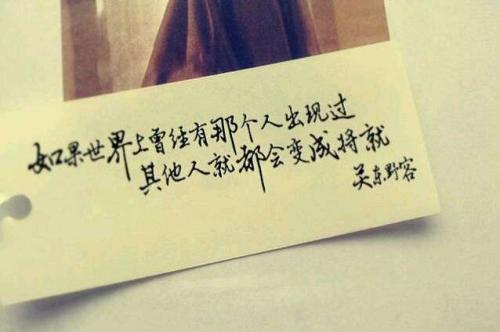 如果世界上曾经有那个人出现过
其他人就都会变成将就
关东野客